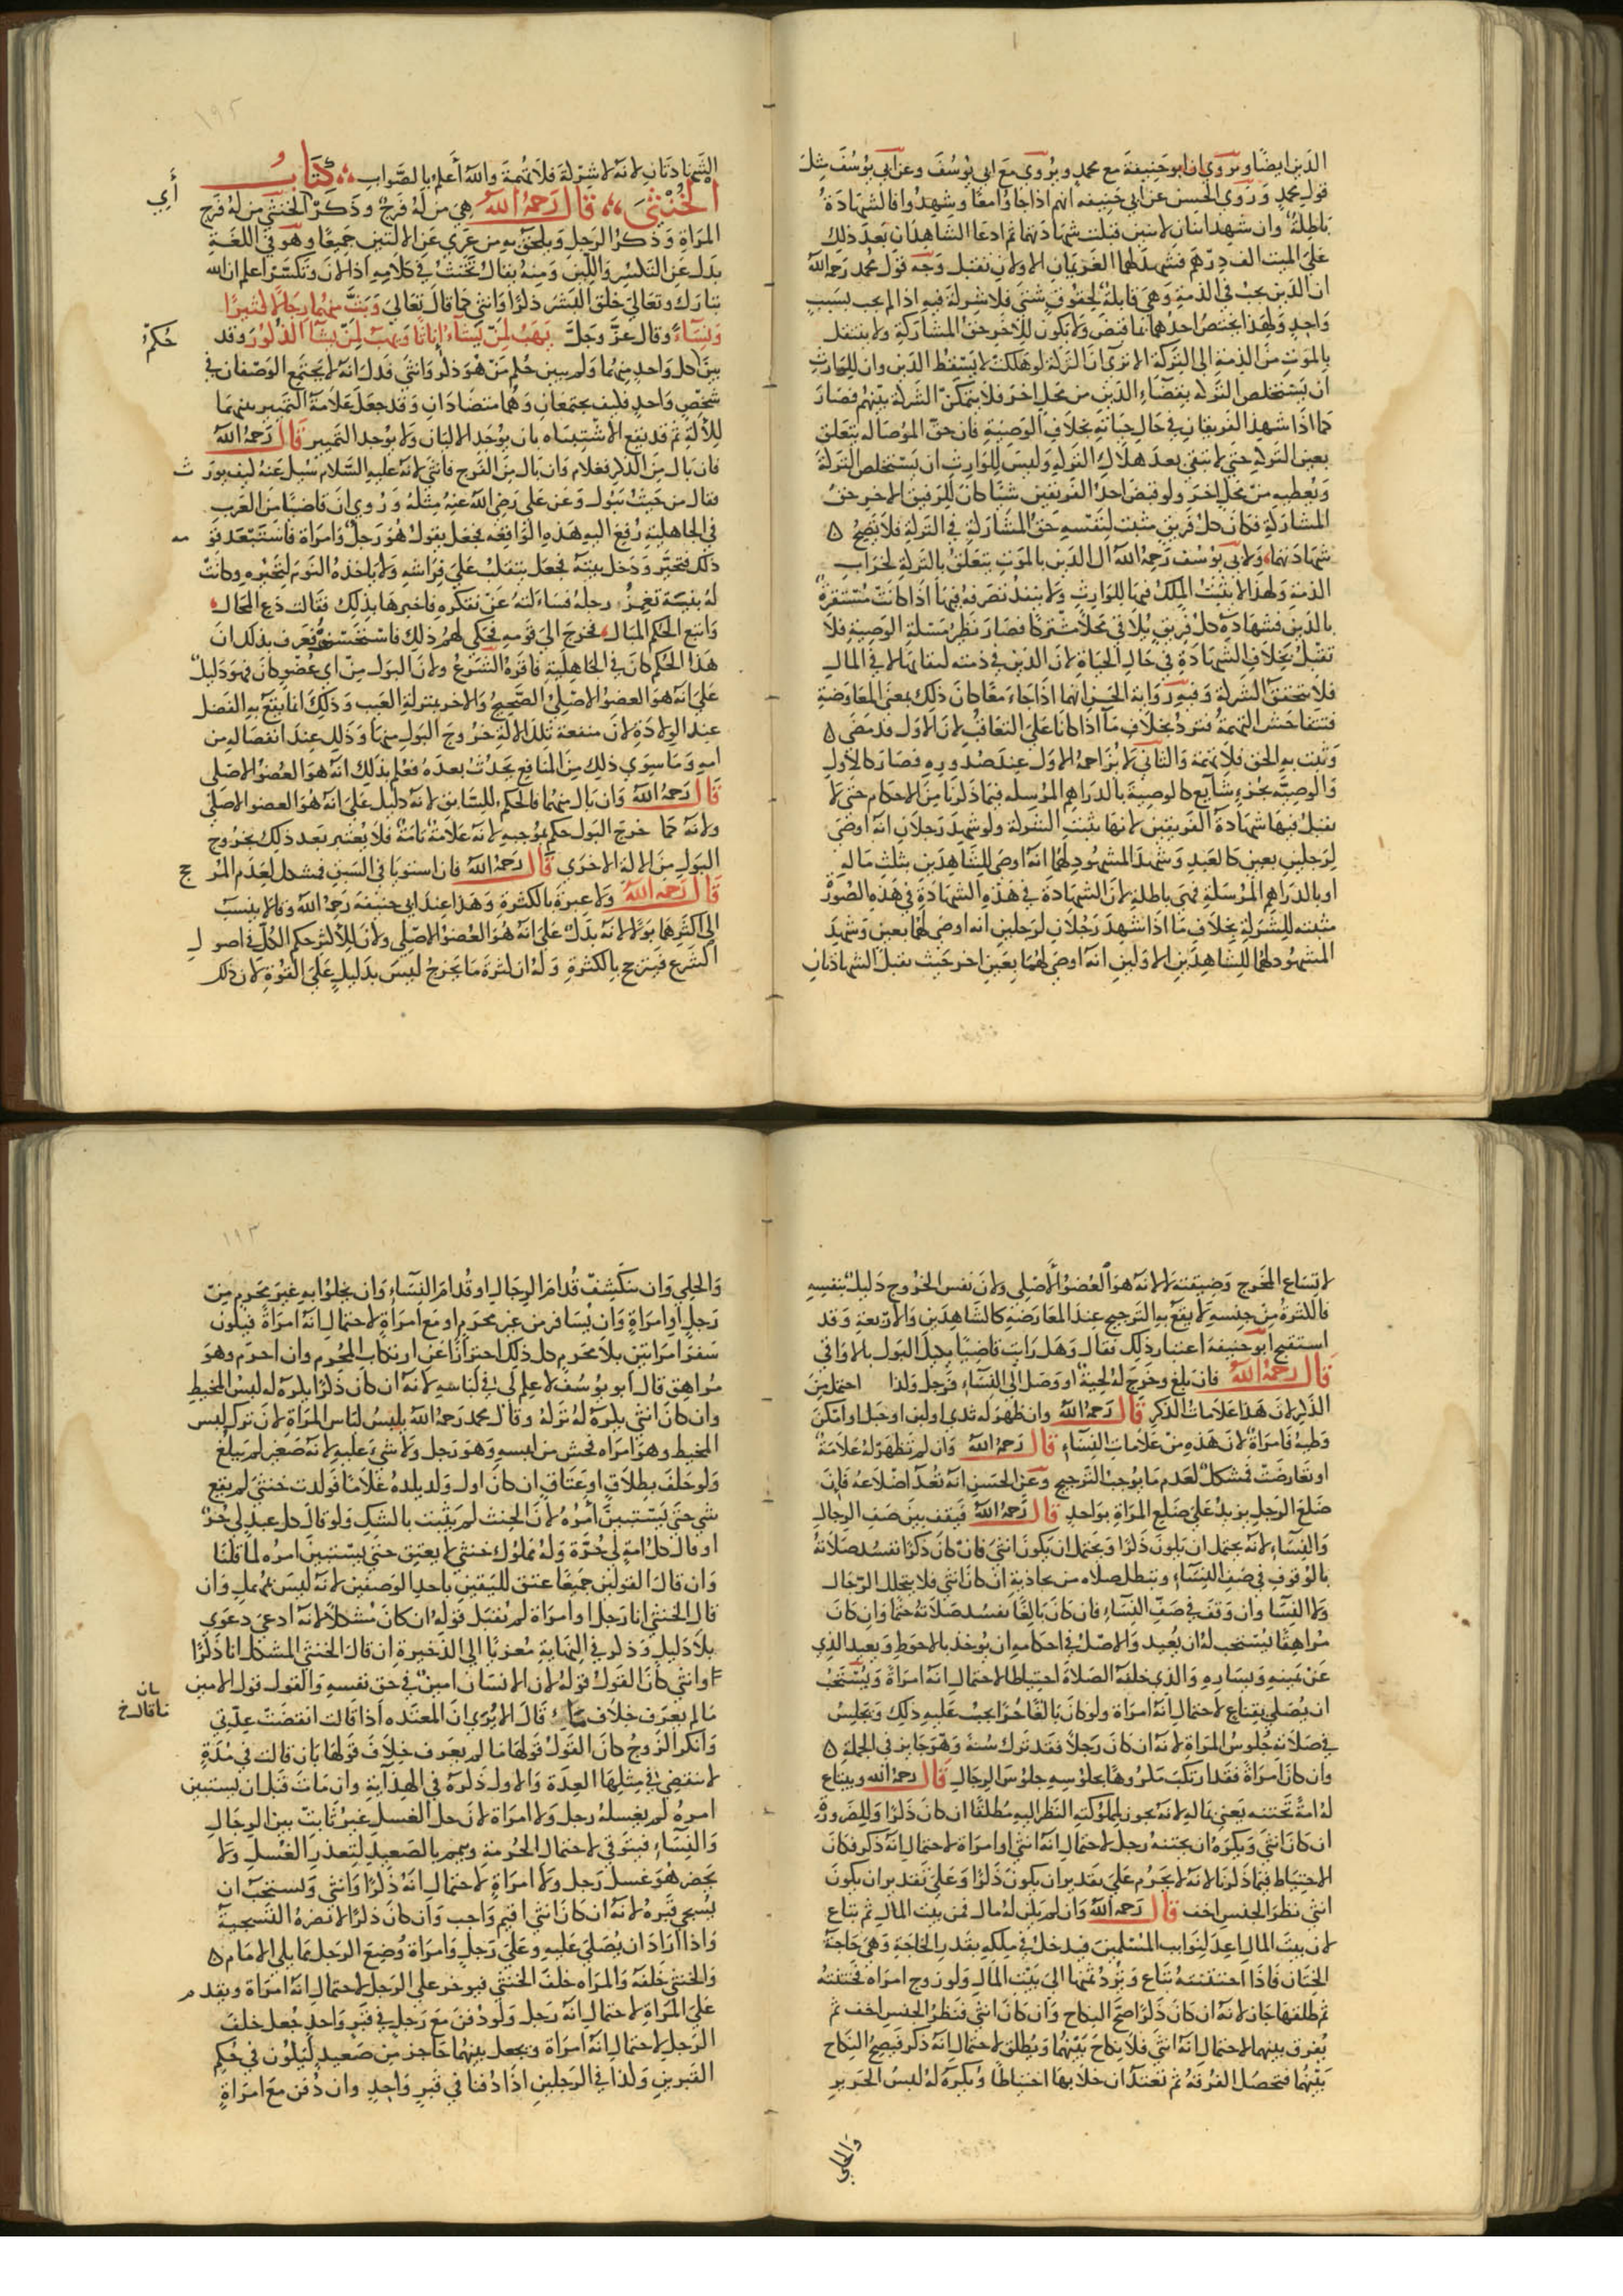 الدين ايضا ويروي ان ابو حنيفة مع محمد ويروي مع ابي يوسف وعن ابي يوسف مثل
قول محمد وروي الحسن عن ابي حنيفة انهم اذا جاوا معا وشهدوا فالشهادة
باطلة وان شهد اثنان لاثنين فقبلت شهادتهما ثم ادعا الشاهدان بعد ذلك
على الميت الف درهم فشهد لهما الغريمان الاولان تقبل وجه قول محمد رحمه الله
ان الدين يجب في الذمة وهي قابلة لحقوق شتي فلا شركة فيه اذا لم يجب بسبب
واحد ولهذا يختص احدهما بما قبض ولا يكون للاخر حق المشاركة ولا ينتقل
بالموت من الذمة الي التركة الا تري ان التركة لو هلكت لا يسقط الدين وان للوارث
ان يستخلص التركة بقضاء الدين من محل اخر فلا تتمكن الشركة بينهم فصار
كما اذا شهد الفريقان في حال حياته بخلاف الوصية فان حق الموصا له يتعلق
بعين التركة حتي لا يبقي بعد هلاك التركة وليس للوارث ان يستخلص التركة
ويعطيه من محل اخر ولو قبض احد الفريقين شيئا كان للفريق الاخر حق
المشاركة فكان كل فريق مثبت لنفسه حق المشاركة في التركة فلا تصح
شهادتهما ولابي يوسف رحمه الله ان الدين بالموت يتعلق بالتركة لخراب
الذمة ولهذا لا يثبت الملك فيها للوارث ولا ينفذ تصرفه فيها اذا كانت مستغرقة
بالدين فشهادة كل فريق يلاقي محلا مشتركا فصار نظير مسئلة الوصية فلا
تقبل بخلاف الشهادة في حال الحياة لان الدين في ذمته لبقائها لا في المال
فلا تتحقق الشركة وفيه رواية الحسن انهما اذا جاءا معا كان ذلك بمعني المعاوضة
فتتفاحش التهمة فترد بخلاف ما اذا كانا على التعاقب لان الاول قد مضي
وثبت به الحق فلا تهمة والثاني لا يزاحم الاول عند صدوره فصار كالاول
والوصية بجزء شايع كالوصية بالدراهم المرسلة فيما ذكرنا من الاحكام حتي لا
تقبل فيها شهادة الفريقين لانها تثبت الشركة ولو شهد رجلان انه اوصي
لرجلين بعين كالعبد وشهد المشهود لهما انه اوصي للشاهدين بثلث ماله
او بالدراهم المرسلة فهي باطلة لان الشهادة في هذه الشهادة في هذه الصورة
مثبتة للشركة بخلاف ما اذا شهد رجلان لرجلين انه اوصي لهما بعين وشهد
المشهود لهما للشاهدين الاولين انه اوصي لهما بعين اخر حيث تقبل الشهادتان
١٩٢
الشهادتان لانه لا شركة فلا تهمة والله أعلم بالصواب كتاب
الخنثى قال رحمه الله هي من له فرج وذكر الخنثي من له فرج
أي
المراة وذكر الرجل ويلحق به من عري عن الالتين جميعا وهو في اللغة
يدل عن التكسر واللين ومنه يقال تخنث في كلامه اذا لان وتكسر اعلم ان الله
تبارك وتعالي خلق البشر ذكرا وانثي كما قال تعالي وبث منهما رجالا كثيرا
ونساء وقال عز وجل يهب لمن يشاء اناثا ويهب لمن يشا الذكور وقد
حكم
بين كل واحد منهما ولم يبين حكم من هو ذكر وانثي فدل انه لا يجتمع الوصفان في
شخص واحد فكيف يجتمعان وهما متضادان وقد جعل علامة التمييز بينهما
للالة ثم قد يقع الاشتباه بان يوجد الالتان ولا يوجد التمييز قال رحمه الله
فان بال من الذكر فغلام وان بال من الفرج فانثي لانه عليه السلام سئل عنه كيف يورث
فقال من حيث تبول وعن علي رضي الله عنه مثله وروي ان قاضيا من العرب
في الجاهلية رفع اليه هذه الواقعه فجعل يقول هو رجل وامراة فاستبعد قومه
ذلك فتحير ودخل بيته فجعل يتقلب على فراشه ولا ياخذه النوم لتحيره وكانت
له بنية تغمز رجله فساءلته عن تفكره فاخبرها بذلك فقالت دع المحال
واتبع الحكم المبال فخرج الي قومه فحكي لهم ذلك فاستحسنوه فعرف بذلك ان
هذا الحكم كان في الجاهلية فاقره الشرع ولان البول من اي عضو كان فهو دليل
على انه هو العضو الاصلي الصحيح والاخر بمنزلة العيب وذلك انما يقع به الفصل
عند الولادة لان منفعة تلك الالة خروج البول منها وذلك عند انفصاله من
امه وما سوي ذلك من المنافع يحدث بعده فعلم بذلك انه هو العضو الاصلي
قال رحمه الله وان بال منهما فالحكم للسابق لانه دليل على انه هو العضو الاصلي
ولانه كما خرج البول حكم بموجبه لانه علامة تامة فلا يعتبر بعد ذلك بخروج
البول من الالة الاخري قال رحمه الله فان استويا في السبق فمشكل لعدم المرجح
قال رحمه الله ولا عبرة بالكثرة وهذا عند ابي حنيفة رحمه الله وقالا ينسب
الي اكثرهما بولا لانه يدل على انه هو العضو الاصلي ولان للاكثر حكم الكل في اصول
الشرع فيترجح بالكثرة وله ان كثرة ما يخرج ليس بدليل على القوة لان ذلك
لاتساع المخرج وضيقته لا لانه هو العضو الاصلي ولان نفس الخروج دليل بنفسه
فالكثرة من جنسه لا يقع به الترجيح عند المعارضة كالشاهدين والاربعة وقد
استقبح ابو حنيفة اعتبار ذلك فقال وهل رايت قاضيا يكيل البول بالاواقي
قال رحمه الله فان بلغ وخرج له لحية او وصل الي النساء فرجل وكذا احتلم من
الذكر لان هذا علامات الذكر قال رحمه الله وان ظهر له ثدي او لبن او حبل او امكن
وطيه فامراة لان هذه من علامات النساء قال رحمه الله وان لم تظهر له علامة
او تعارضت فمشكل لعدم ما يوجب الترجيح وعن الحسن انه تعد اضلاعه فان
ضلع الرجل يزيد على ضلع المراة بواحد قال رحمه الله فيقف بين صف الرجال
والنساء لانه يحتمل ان يكون ذكرا ويحتمل ان يكون انثي فان كان ذكرا تفسد صلاته
بالوقوف في صف النساء وتبطل صلاه من يحاذيه ان كان انثي فلا يتخلل الرجال
ولا النسا وان وقف في صف النساء فان كان بالغا تفسد صلاته حتما وان كان
مراهقا يستحب له ان يعيد والاصل في احكامه ان يوخذ بالاحوط ويعيد الذي
عن يمينه ويساره والذي خلفه الصلاة احتياطا لاحتمال انه امراة ويستحب
ان يصلي بقناع لاحتمال انه امراة ولو كان بالغا حرا يجب عليه ذلك ويجلس
في صلاته جلوس المراة لانه ان كان رجلا فقد ترك سنة وهو جايز في الجملة
وان كان امراة فقد ارتكب مكروها بجلوسه جلوس الرجال قال رحمه الله ويبتاع
له امة تختنه يعني بماله لانه يجوز لمملوكته النظر اليه مطلقا ان كان ذكرا وللضرورة
ان كان انثي ويكره ان يختنه رجل لاحتمال انه انثي او امراة لاحتمال انه ذكر فكان
الاحتياط فيما ذكرنا لانه لا يحرم على تقدير ان يكون ذكرا وعلى تقدير ان يكون
انثي نظر الجنس اخف قال رحمه الله وان لم يكن له مال فمن بيت المال ثم تباع
لان بيت المال اعد لنوايب المسلمين فيدخل في ملكه بقدر الحاجة وهي حاجة
الختان فاذا اختتنته تباع ويرد ثمنها الي بيت المال ولو زوج امراه فختنته
ثم طلقها جاز لانه ان كان ذكرا صح النكاح وان كان انثي فنظر الجنس اخف ثم
يفرق بينهما لاحتمال انه انثي فلا نكاح بينهما ويطلق لاحتمال انه ذكر فيصح النكاح
بينهما فتحصل الفرقة ثم تعتد ان خلا بها احتياطا ويكره له لبس الحرير
والحلي
١٩٣
والحلي وان ينكشف قدام الرجال او قدام النساء وان يخلوا به غير محرم من
رجل او امراة وان يسافر من غير محرم او مع امراة لاحتمال انه امراة فيكون
سفر امراتين بلا محرم كل ذلك احترازا عن ارتكاب المحرم وان احرم وهو
مراهق قال ابو يوسف لا علم لي في لباسه لانه ان كان ذكرا يكره له لبس المخيط
وان كان انثي يكره له تركه وقال محمد رحمه الله يلبس لباس المراة لان ترك لبس
المخيط وهو امراه فحش من لبسه وهو رجل ولا شيء عليه لانه صغير لم يبلغ
ولو حلف بطلاق او عتاق ان كان اول ولد يلده غلاما فولدت خنثي لم يقع
شي حتي يستبين أمره لان الحنث لم يثبت بالشك ولو قال كل عبد لي حر
او قال كل امة لي حرة وله مملوك خنثي لا يعتق حتي يستبين امره لما قلنا
وان قال القولين جميعا عتق لليقين باحد الوصفين لانه ليس بمهمل وان
قال الخنثي انا رجل او امراة لم يقبل قوله ان كان مشكلا لانه ادعي دعوي
بلا دليل وذكر في النهاية معزيا الي الذخيرة ان قال الخنثي المشكل انا ذكرا
او انثي كان القول قوله لان الانسان امين في حق نفسه والقول قول الامين
بان
ما قال خ
مالم يعرف خلاف ما قال الا تري ان المعتده اذا قالت انقضت عدتي
وانكر الزوج كان القول قولها ما لم يعرف خلاف قولها بان قالت في مدة
لا تنقضي في مثلها العدة والاول ذكره في الهداية وان مات قبل ان يستبين
امره لم يغسله رجل ولا امراة لان حل الغسل غير ثابت بين الرجال
والنساء فيتوقي لاحتمال الحرمة ويمم بالصعيد لتعذر الغسل ولا
يحضر هو غسل رجل ولا امراة لاحتمال انه ذكر او انثي ويستحب ان
يسجي قبره لانه ان كان انثي اقيم واجب وان كان ذكرا لا تضره التسجية
واذا اراد ان يصلي عليه وعلى رجل وامراة وضع الرجل مما يلي الامام
والخنثي خلفه والمراه خلف الخنثي فيوخر على الرجل لاحتمال انه امراة ويقدم
على المراة لاحتمال انه رجل ولو دفن مع رجل في قبر واحد جعل خلف
الرجل لاحتمال انه امراة ويجعل بينهما حاجز من صعيد ليكون في حكم
القبرين وكذا في الرجلين اذا دفنا في قبر واحد وان دفن مع امراة